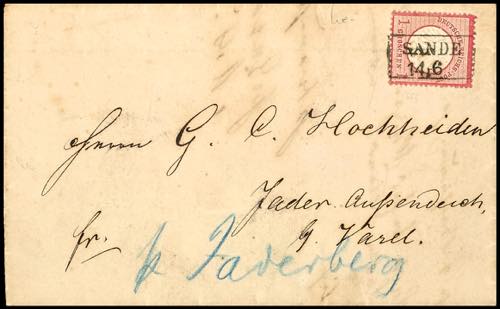 1 GROSCHEN
DEUTSCHE REICHS-POST
SANDE
14/6
Herrn G. C. Hochheiden
Jader Außendeich,
b/ Varel.
fr.
p Jaderberg